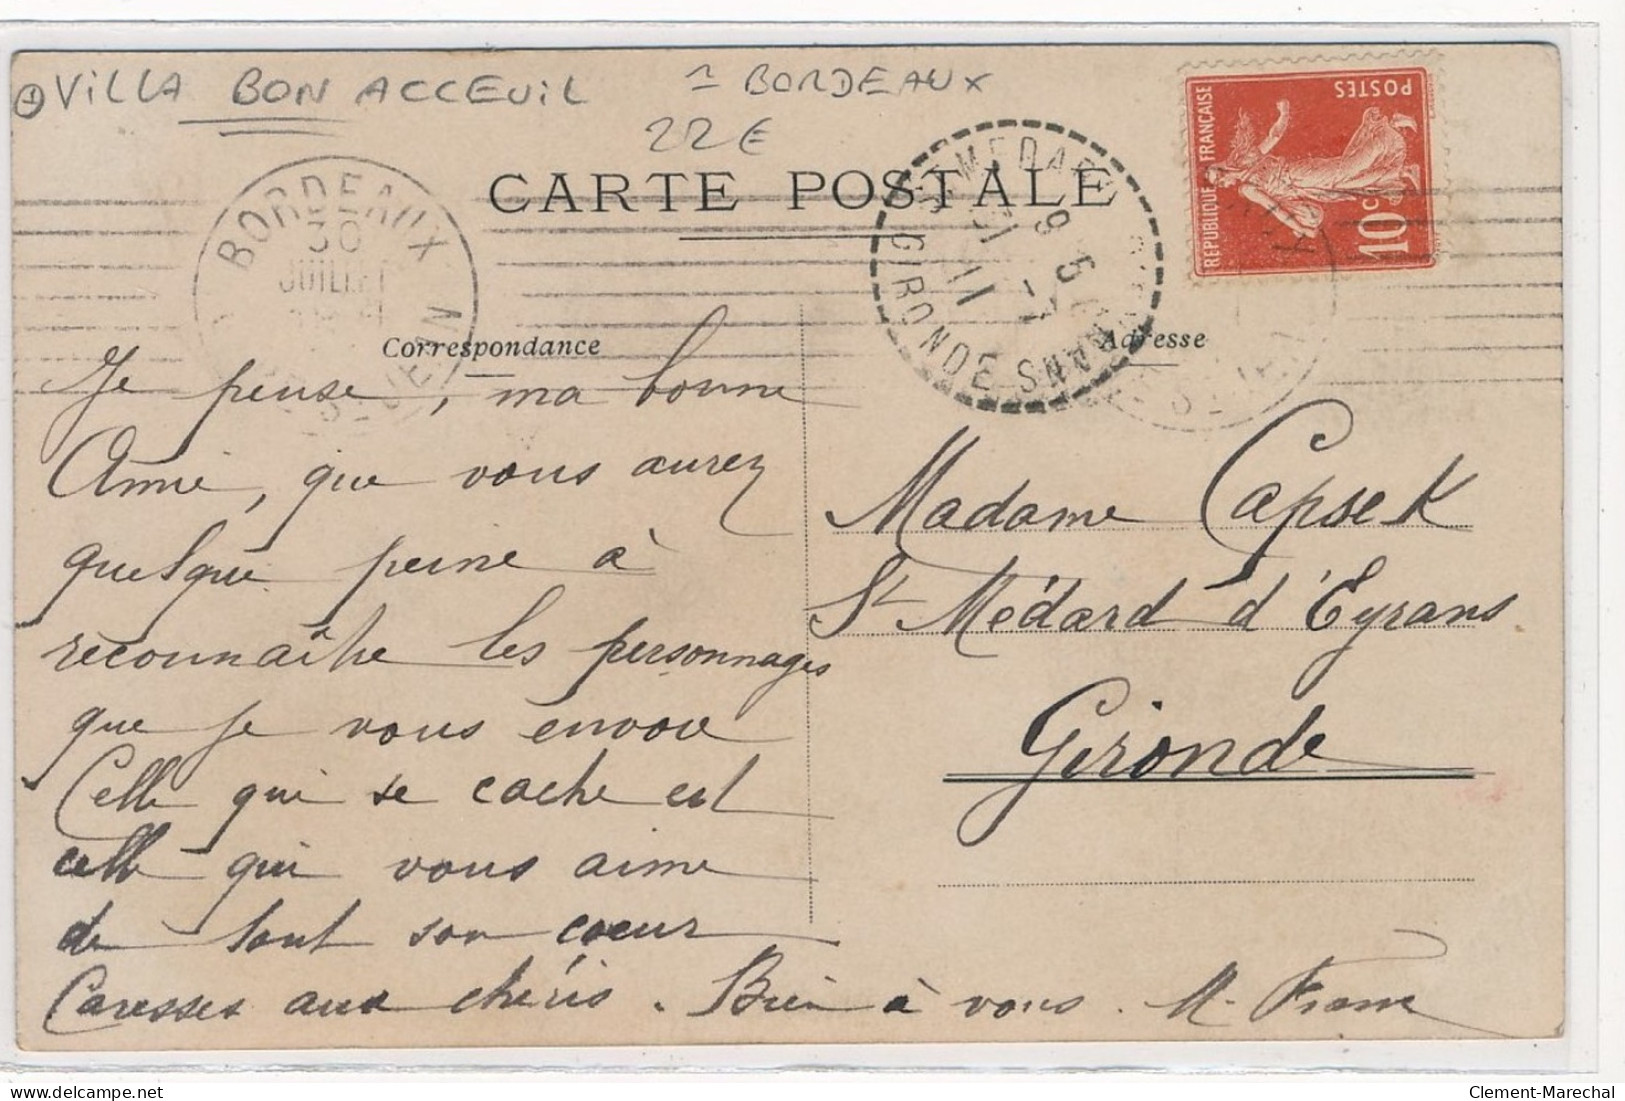 ① VILLA BON ACCEUIL 1 BORDEAUX
22€
CARTE POSTALE
BORDEAUX
30
JUILLET
GIRONDE
POSTES
REPUBLIQUE FRANÇAISE
10 c
Correspondance
Adresse
Je pense, ma bonne
Amie, que vous aurez
quelque peine à
reconnaître les personnages
que je vous envoie
Celle qui se cache est
celle qui vous aime
de tout son coeur
Caresses aux chéris. Bien à vous. M. Franc
Madame Capsek
St Médard d'Eyrans
Gironde
Clement-Marechal